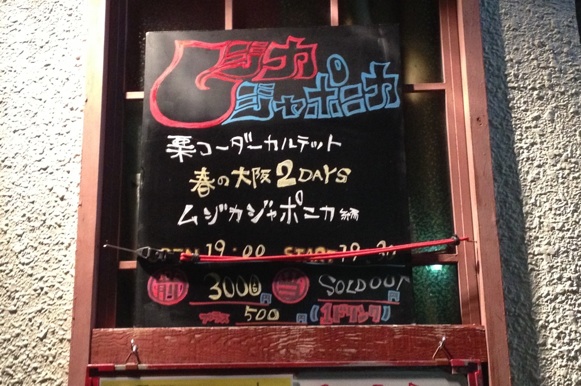 ムジカ
ジャポニカ
栗コーダーカルテット
春の大阪2DAYS
ムジカジャポニカ編
OPEN 19:00 START 19:30
前 3000円 当 SOLD OUT
プラス 500円 (1ドリンク)